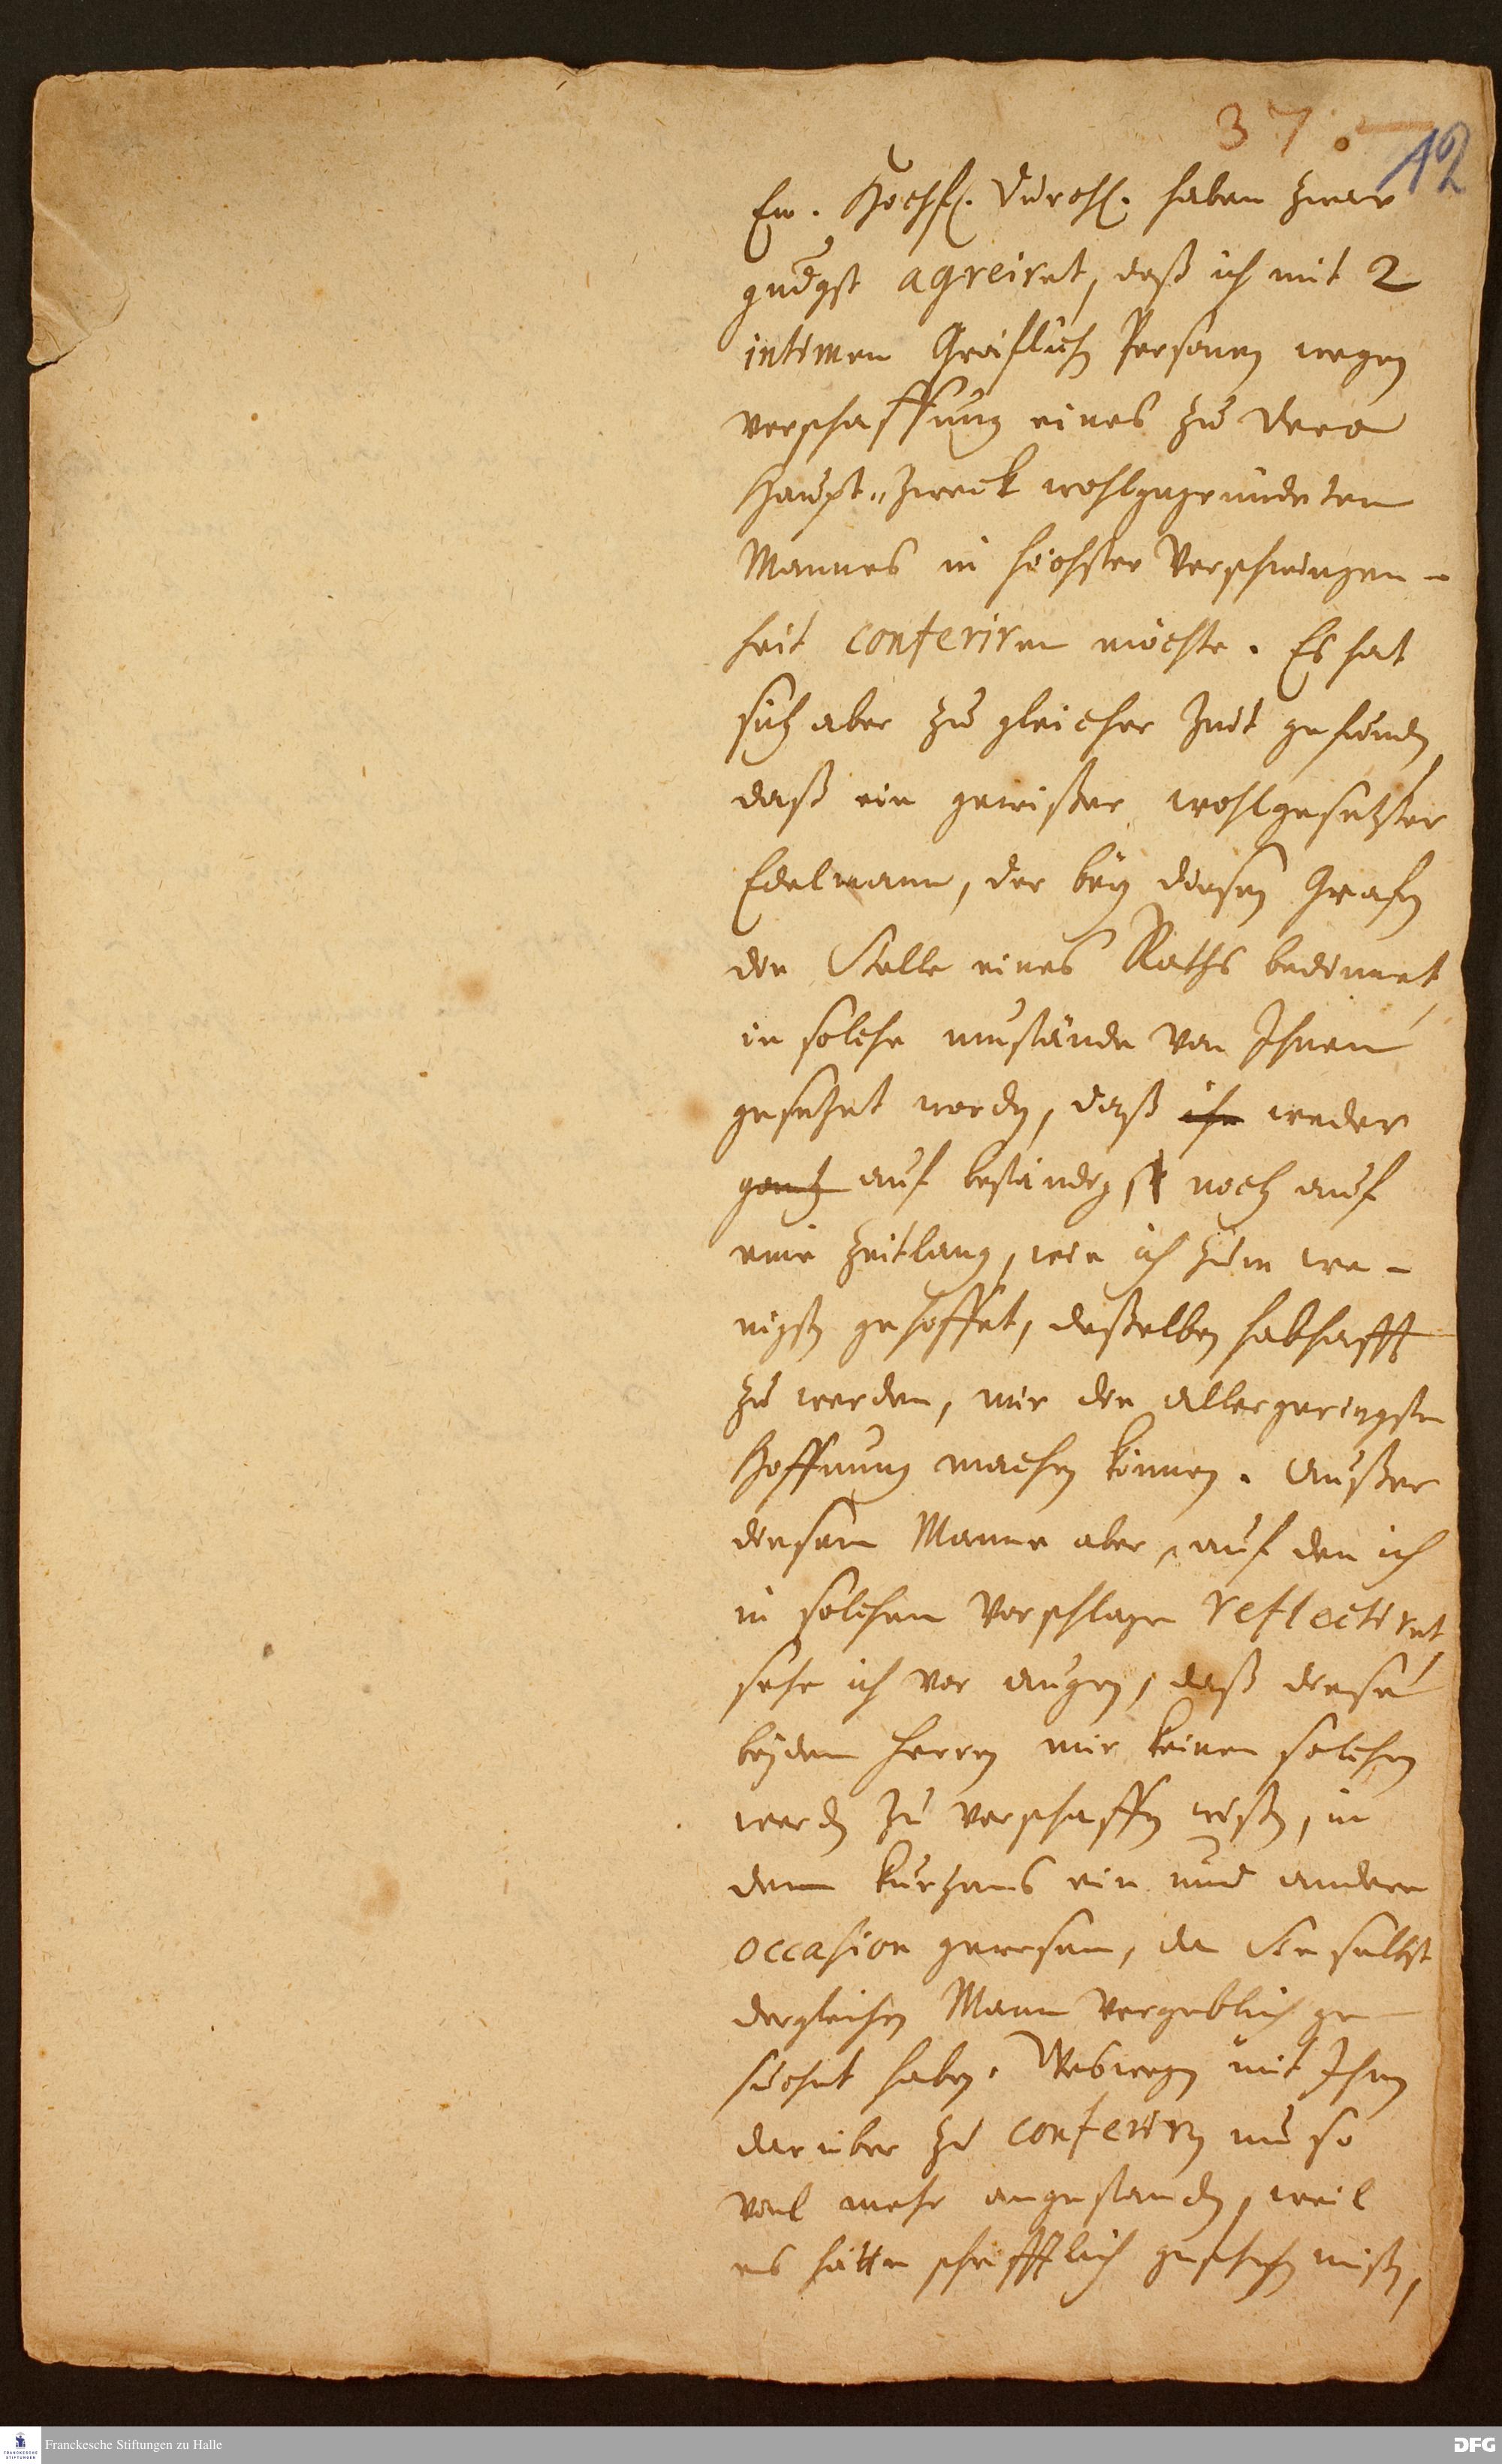 37.
12
Ew. Hochf. Durchl. haben zwar
gndgst agreiret, daß ich mit 2
intimen Gräflich Personen wegen
verschaffung eines zu Dero
Haupt-Zweck wohlgegründeten
Mannes in höchster Verschwiegen-
heit conferiren möchte. Es hat
sich aber zu gleicher Zeit gefunden,
daß ein gewißer wohlgesetzter
Edelmann, der bey diesen Grafen
die Stelle eines Raths bedienet,
in solche umstände von Ihnen
gesetzet worden, daß ihn weder
gantz auf beständigst noch auf
eine Zeitlang, wie ich zum we-
nigsten gehoffet, deßelben habhafft
zu werden, mir die allergeringste
Hoffnung machen können. Außer
diesem Manne aber, auf den ich
in solchem Vorschlage reflectiret,
sehe ich vor augen, daß diese
beyden Herren mir keinen solchen
werden zu verschaffen wißen, in
dem kurtzens ein und andere
occasion gewesen, da Sie selbst
dergleichen Mann vergeblich ge-
suchet haben. Weswegen mit Ihnen
darüber zu conferiren um so
viel mehr angestanden, weil
es hätte schrifftlich geschehen müßen,
Franckesche Stiftungen zu Halle
FRANCKESCHE
STIFTUNGEN
DFG